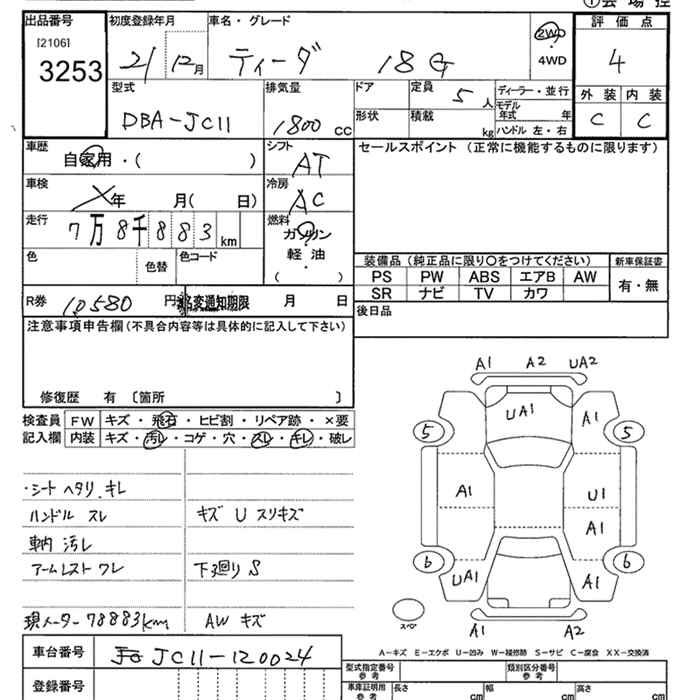 ①会場控
出品番号 初度登録年月 車名・グレード 評価点
[2106]
3253 21/12月 ティーダ 18G 2WD・4WD 4
型式 排気量 ドア 定員 5人 ディーラー・並行 外装 内装
DBA-JC11 1800cc 形状 積載 kg モデル年式 年 C C
ハンドル 左・右
車歴 自家用・( ) シフト AT セールスポイント (正常に機能するものに限ります)
車検 年 月( 日) 冷房 AC
走行 7万8千883km 燃料 ガソリン・軽油・( )
色 色替 色コード
装備品(純正品に限り○をつけてください) 新車保証書
PS PW ABS エアB AW 有・無
SR ナビ TV カワ
R券 10580円 名変通知期限 月 日
後日品
注意事項申告欄(不具合内容等は具体的に記入して下さい)
修復歴 有〔箇所 〕
検査員記入欄 FW キズ・飛石・ヒビ割・リペア跡・×要
内装 キズ・汚レ・コゲ・穴・スレ・キレ・破レ
・シートヘタリ.キレ
ハンドル スレ キズ U スリキズ
車内 汚レ
アームレスト ワレ 下廻り S
現メーター 78883km AW キズ
A1 A2 UA2
UA1 A1
5 5
A1 U1
A1
6 6
UA1 A1
スペア
A1 A2
A-キズ E-エクボ U-凹み W-補修跡 S-サビ C-腐食 XX-交換済
車台番号 JC11-120024
登録番号
型式指定番号 参考 類別区分番号 参考
車庫証明用 参考 長さ cm 幅 cm 高さ cm